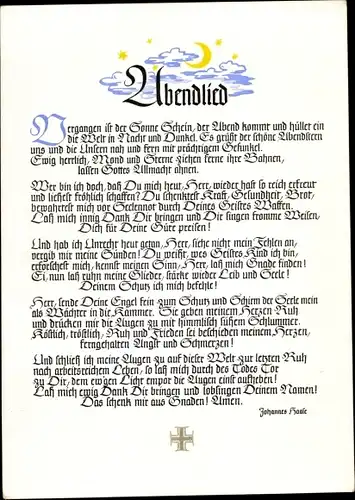 Abendlied
Vergangen ist der Sonne Schein, der Abend kommt und hüllet ein
die Welt in Nacht und Dunkel. Es grüßt der schöne Abendstern
uns und die Unsern nah und fern mit prächtigem Gefunkel.
Ewig herrlich, Mond und Sterne ziehen ferne ihre Bahnen,
lassen Gottes Allmacht ahnen.
Wer bin ich doch, daß Du mich heut, Herr, wieder hast so reich erfreut
und ließest fröhlich schaffen? Du schenktest Kraft, Gesundheit, Brot,
bewahrtest mich vor Seelennot durch Deines Geistes Waffen.
Laß mich innig Dank Dir bringen und Dir singen fromme Weisen,
Dich für Deine Güte preisen!
Und hab ich Unrecht heut getan, Herr, siehe nicht mein Fehlen an,
vergib mir meine Sünden! Du weißt, wes Geistes Kind ich bin,
erforschest mich, kennst meinen Sinn, Herr, laß mich Gnade finden!
Ei, nun laß ruhn meine Glieder, stärke wieder Leib und Seele!
Deinem Schutz ich mich befehle!
Herr, sende Deine Engel fein zum Schutz und Schirm der Seele mein
als Wächter in die Kammer. Sie geben meinem Herzen Ruh
und drücken mir die Augen zu mit himmlisch süßem Schlummer.
Köstlich, tröstlich, Ruh und Frieden sei beschieden meinem Herzen,
ferngehalten Angst und Schmerzen!
Und schließ ich meine Augen zu auf dieser Welt zur letzten Ruh
nach arbeitsreichem Leben, so laß mich durch des Todes Tor
zu Dir, dem ew'gen Licht empor die Augen einst aufheben!
Laß mich ewig Dank Dir bringen und lobsingen Deinem Namen!
Das schenk mir aus Gnaden! Amen.
Johannes Hause